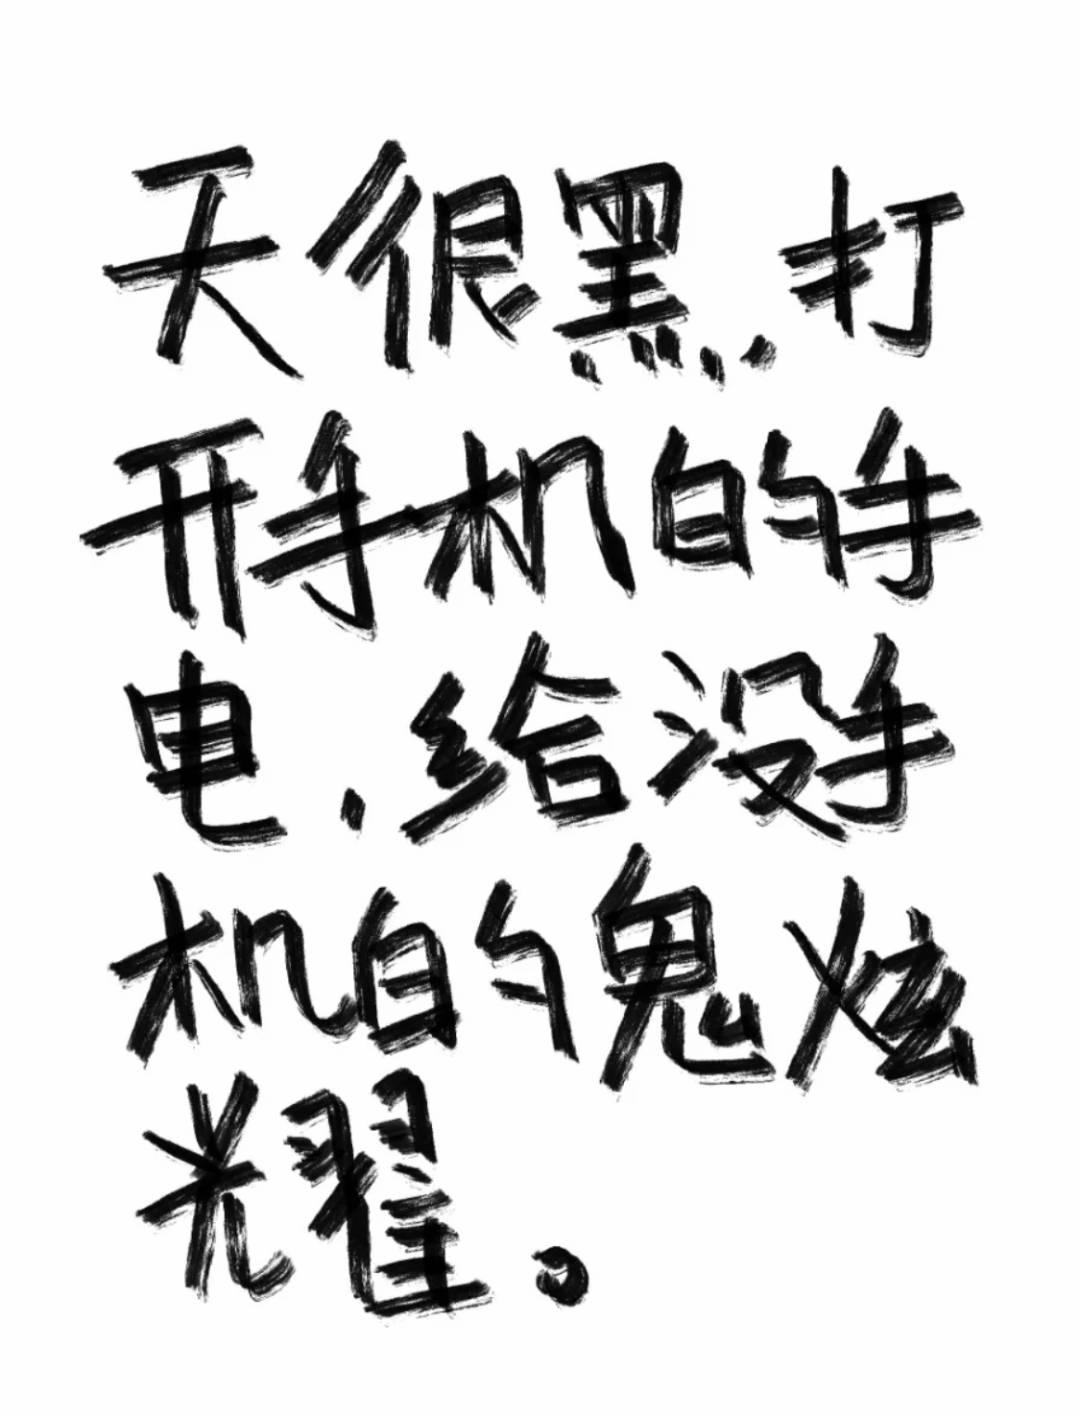 天很黑,打
开手机的手
电,给没手
机的鬼炫
耀。